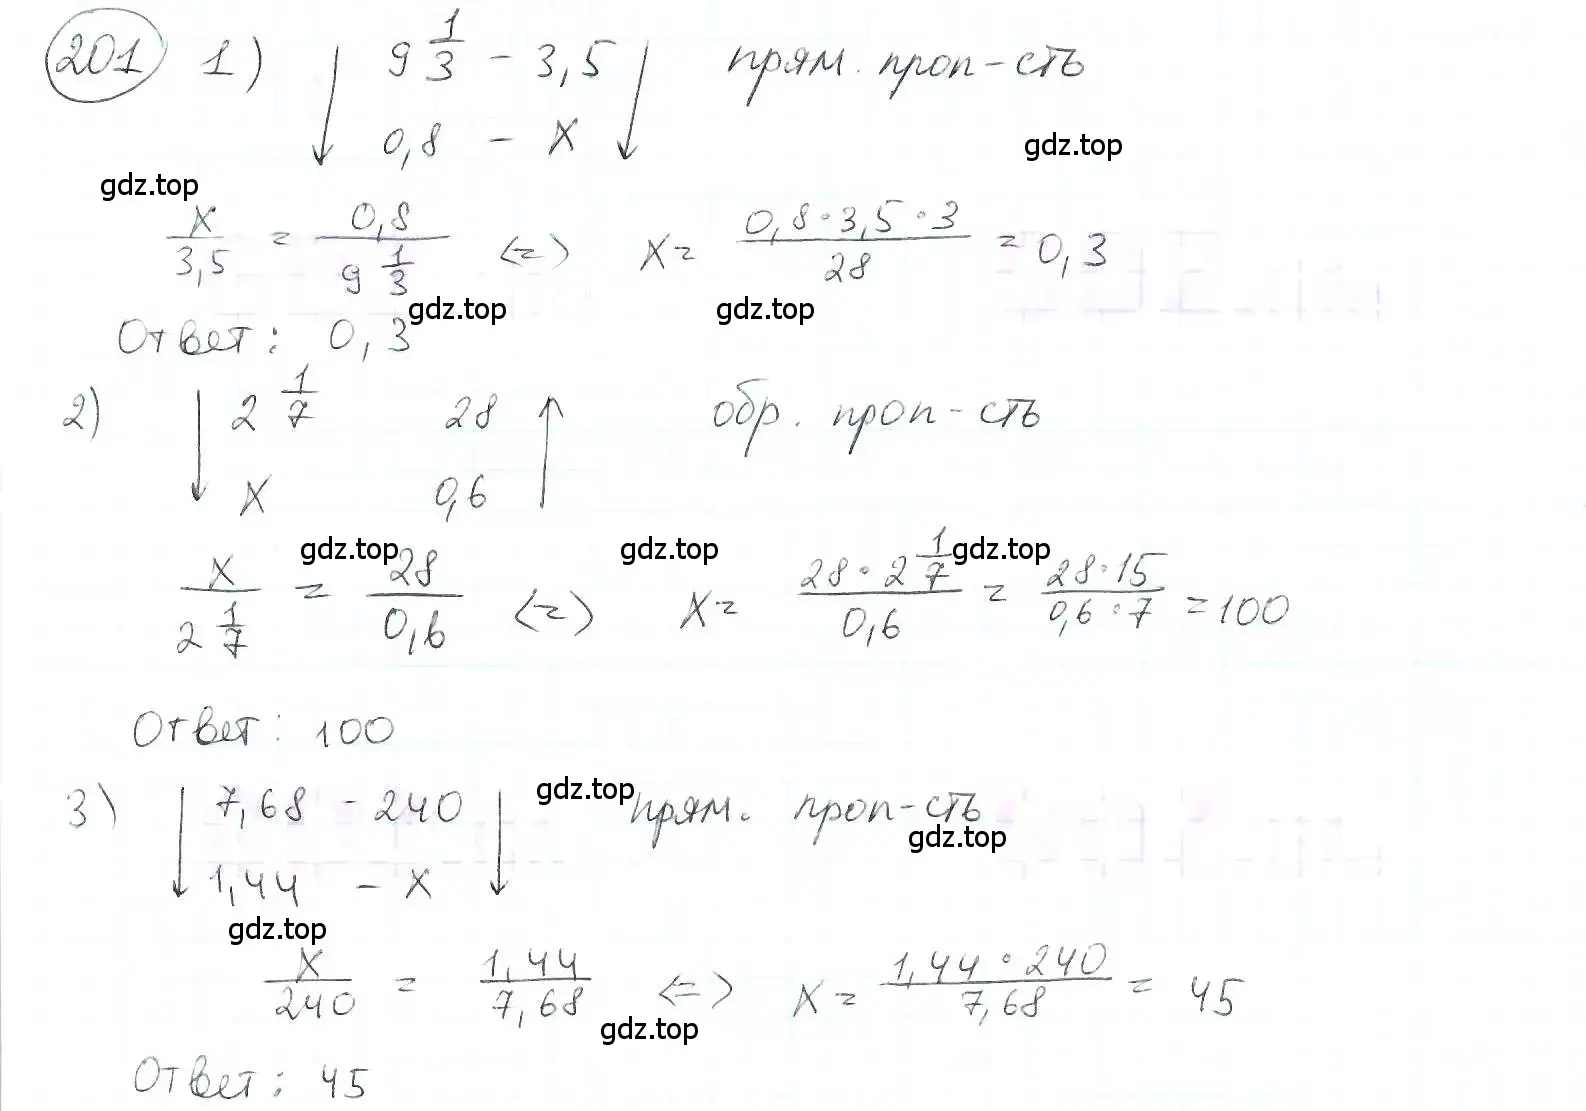 201 1) 9 1/3 - 3,5 прям. проп-сть
0,8 - x
gdz.top
gdz.top
x/3,5 = 0,8/(9 1/3) <=> x = (0,8·3,5·3)/28 = 0,3
gdz.top gdz.top
Ответ: 0,3
2) 2 1/7 28 обр. проп-сть
x 0,6
gdz.top gdz.top gdz.top
x/(2 1/7) = 28/0,6 <=> x = (28·2 1/7)/0,6 = (28·15)/(0,6·7) = 100
Ответ: 100
3) 7,68 - 240 gdz.top прям. проп-сть
gdz.top
1,44 - x
gdz.top
x/240 = 1,44/7,68 <=> x = (1,44·240)/7,68 = 45
gdz.top
Ответ: 45